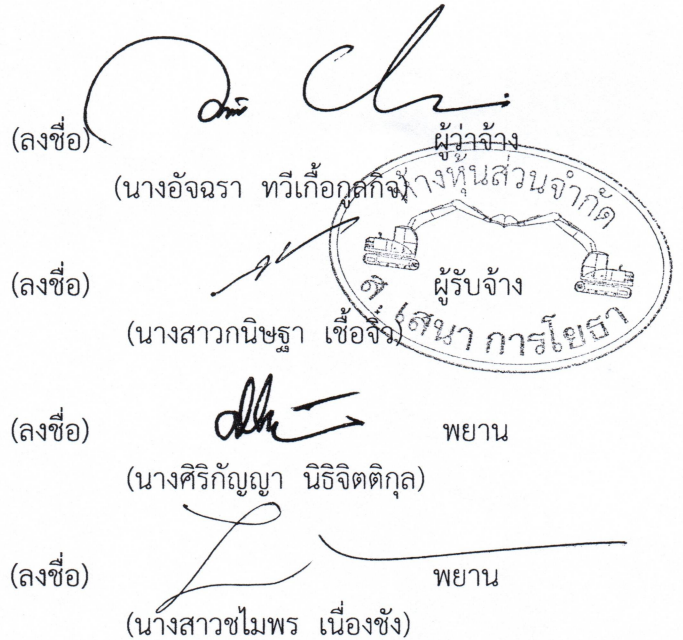 (ลงชื่อ) ผู้ว่าจ้าง
(นางอัจฉรา ทวีเกื้อกูลกิจ)
ห้างหุ้นส่วนจำกัด
(ลงชื่อ) ผู้รับจ้าง
ส.เสนา การโยธา
(นางสาวกนิษฐา เชื้อจิ๋ว)
(ลงชื่อ) พยาน
(นางศิริกัญญา นิธิจิตติกุล)
(ลงชื่อ) พยาน
(นางสาวชไมพร เนื่องชัง)